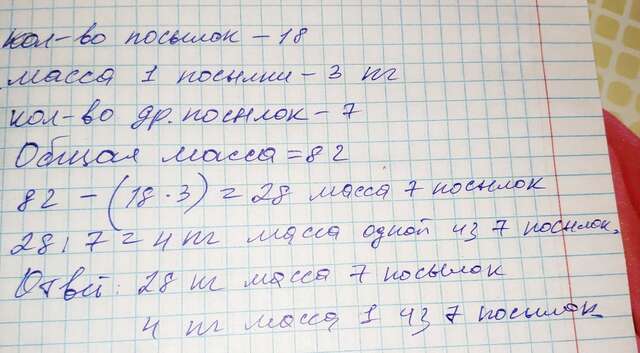 кол-во посылок - 18
масса 1 посылки - 3 кг
кол-во др. посылок - 7
Общая масса = 82
82 - (18 · 3) = 28 масса 7 посылок
28 : 7 = 4 кг масса одной из 7 посылок.
Ответ: 28 кг масса 7 посылок
4 кг масса 1 из 7 посылок